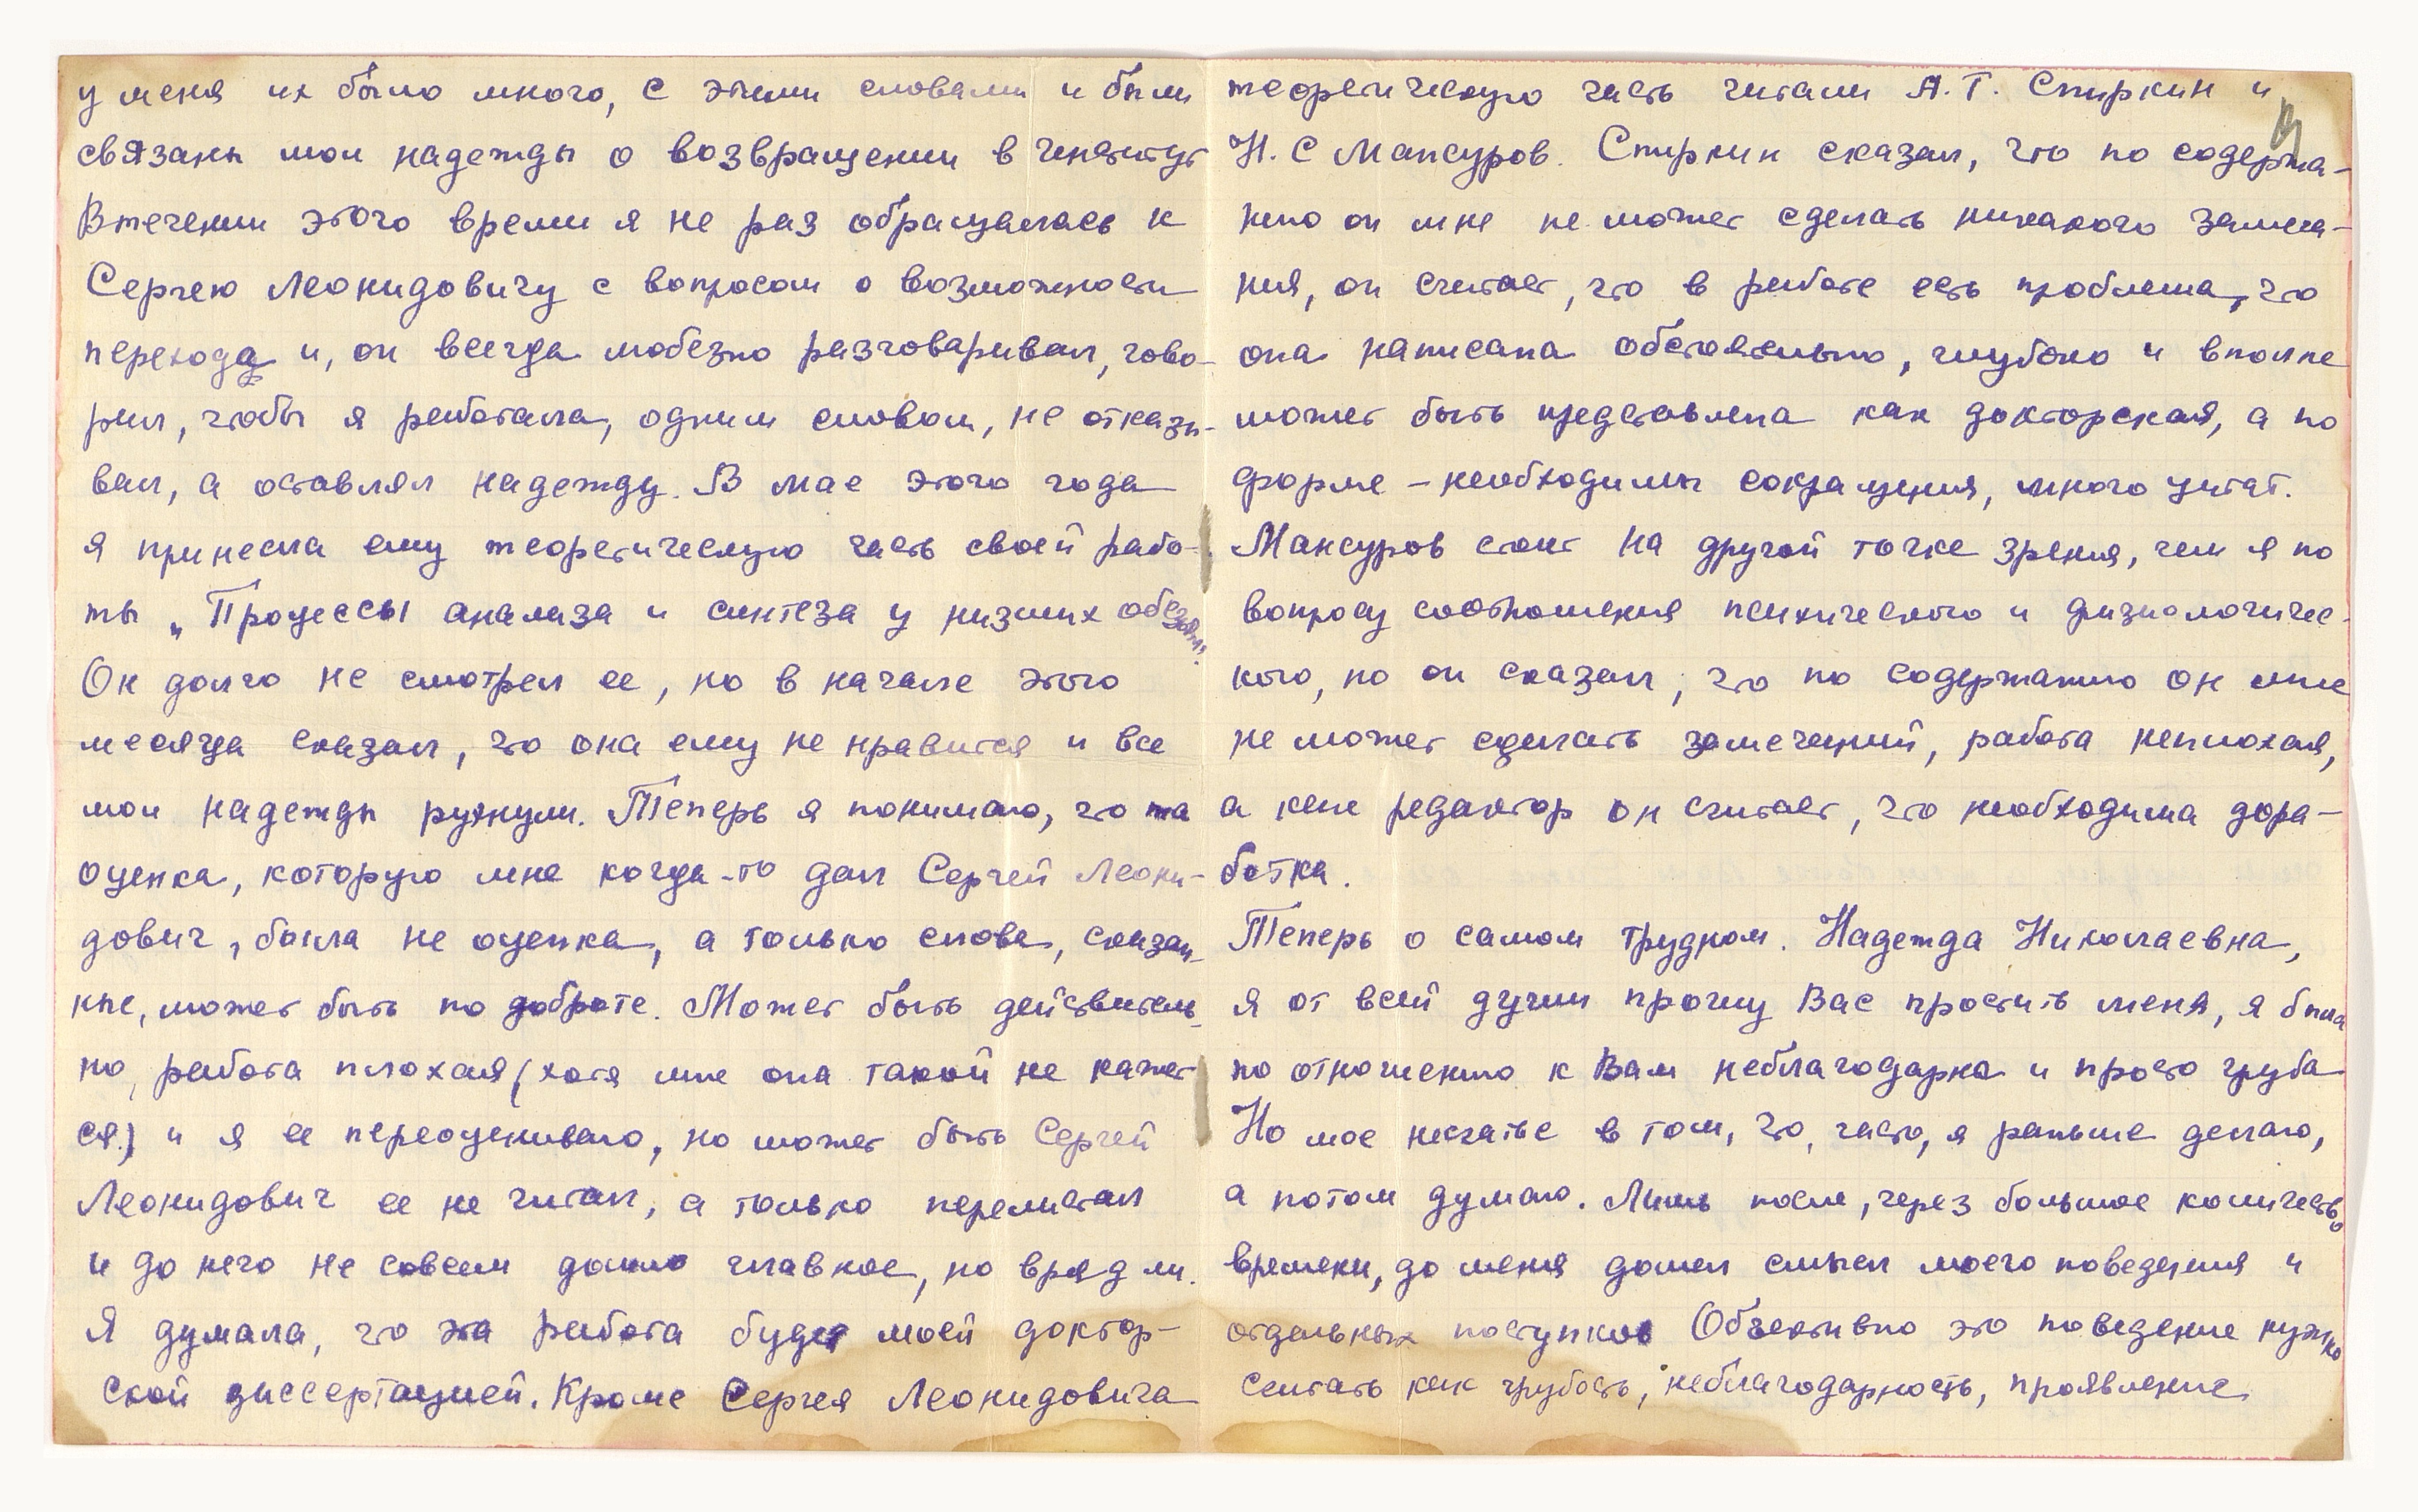 у меня их было много, с этими словами и были
связаны мои надежды о возвращении в Институт
Втечении этого времи я не раз обращалась к
Сергею Леонидовичу с вопросом о возможности
перехода и, он всегда любезно разговаривал, гово-
рил, чтобы я работала, одним словом, не отказы-
вал, а оставлял надежду. В мае этого года
я принесла ему теоретическую часть своей рабо-
ты „Процессы анализа и синтеза у низших обезьян".
Он долго не смотрел ее, но в начале этого
месяца сказал, что она ему не нравится и все
мои надежды рухнули. Теперь я понимаю, что та
оценка, которую мне когда-то дал Сергей Леони-
дович, была не оценка, а только слова, сказан-
ные, может быть по доброте. Может быть действитель-
но, работа плохая (хотя мне она такой не кажет-
ся.) и я ее переоцениваю, но может быть Сергей
Леонидович ее не читал, а только перелистал
и до него не совсем дошло главное, но вряд ли.
Я думала, что эта работа будет моей доктор-
ской диссертацией. Кроме Сергея Леонидовича
теоретическую часть читали А.Г. Спиркин и
Н. С Мансуров. Спиркин сказал, что по содержа-
нию он мне не может сделать никакого замеча-
ния, он считает, что в работе есть проблема, что
она написана обстоятельно, глубоко и вполне
может быть представлена как докторская, а по
форме – необходимы сокращения, много цитат.
Мансуров стоит на другой точке зрения, чем я по
вопросу соотношения психического и физиологичес-
кого, но он сказал, что по содержанию он мне
не может сделать замечаний, работа неплохая,
а как редактор он считает, что необходима дора-
ботка.
Теперь о самом трудном. Надежда Николаевна,
я от всей души прошу Вас простить меня, я была
по отношению к Вам неблагодарна и просто груба
Но мое несчатье в том, что, часто, я раньше делаю,
а потом думаю. Лишь после, через большое количество
времени, до меня дошел смысл моего поведения и
отдельных поступков Объективно это поведение нужно
считать как грубость, неблагодарность, проявление